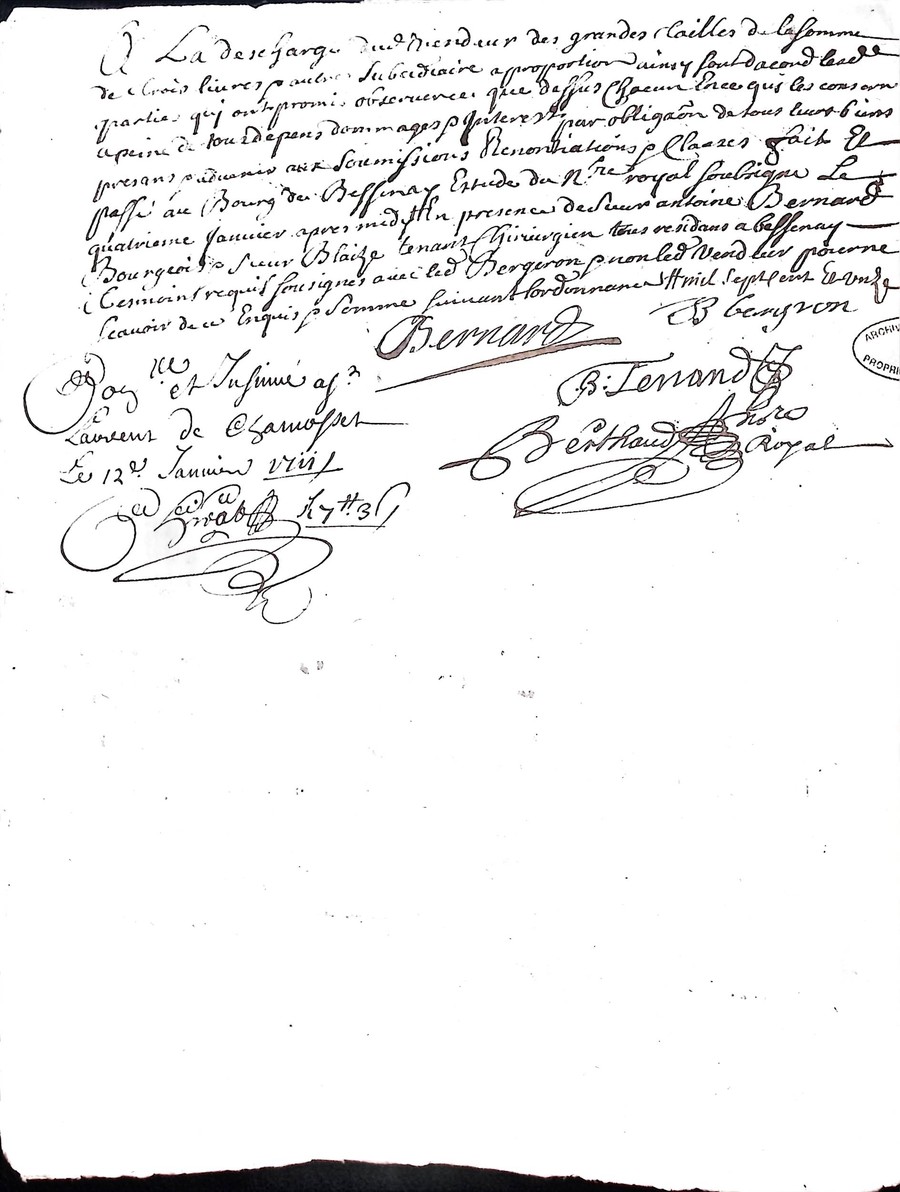 A La descharge dud Vendeur des grandes tailles de la somme
de trois livres & autre subsidiaire a proportion ainsy sont dacord lesd
parties qui ont promis observer ce que dessus Chacun En ce qui les concern
a peine de tous depens dommages & Interest par obligaon de tous leurs biens
presans & advenir aux Soumissions Renontiations & Clauzes fait Et
passé au Bourg de Bessenay Estude du Nre royal soubsigné Le
quatrieme Janvier apres midy En presence de Sieur antoine Bernard
Bourgeois & Sieur Blaize tenant Chirurgien tous residans a bessenay
tesmoins requis sousignes avec led Bergeron & non led Vendeur pour ne
scavoir de ce Enquis & Sommé suivant lordonnance mil sept cent Et unze
Bernard B bergeron
B: Tenand
et Insinué a
Laurent de Chamosset
Le 12e Janvier 1711
Berthaud Nore Royal
ARCHIV
PROPRI